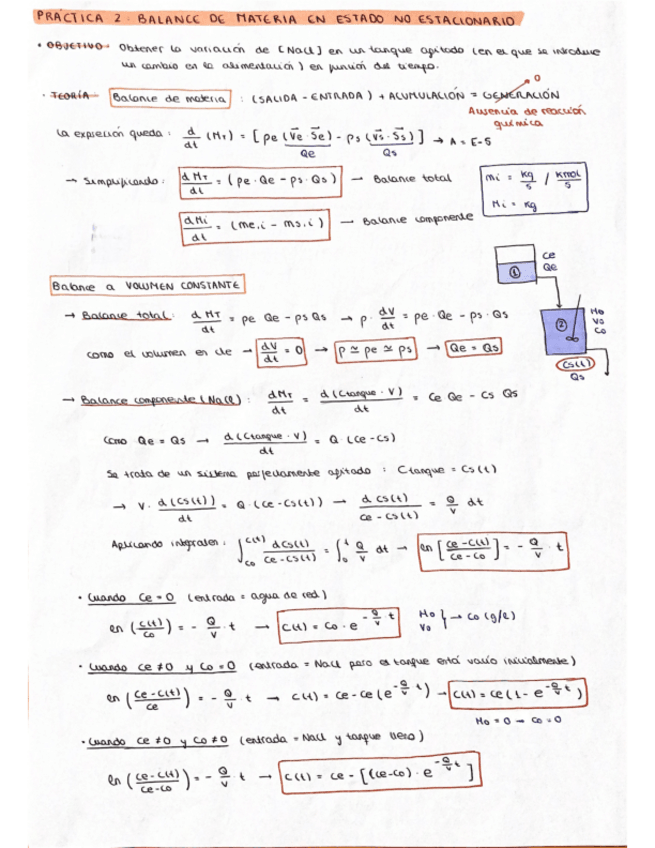 PRÁCTICA 2. BALANCE DE MATERIA EN ESTADO NO ESTACIONARIO
· OBJETIVO: Obtener la variación de [NaCl] en un tanque agitado (en el que se introduce
un cambio en la alimentación) en función del tiempo.
· TEORÍA: Balance de materia : (SALIDA - ENTRADA) + ACUMULACIÓN = GENERACIÓN 0
Ausencia de reacción química
La expresión queda : d/dt (MT) = [ρe (Ve·Se) - ρs (Vs·Ss)] → A = E-S
Qe Qs
→ Simplificando : dMT/dt = (ρe·Qe - ρs·Qs) → Balance total
mi = kg/s / kmol/s
Mi = kg
dMi/dt = (me,i - ms,i) → Balance componente
① Ce Qe
② Mo Vo Co
Cs(t)
Qs
Balance a VOLUMEN CONSTANTE
→ Balance total: dMT/dt = ρe Qe - ρs Qs → ρ · dV/dt = ρe · Qe - ρs · Qs
como el volumen en cte → dV/dt = 0 → ρ ≃ ρe ≃ ρs → Qe = Qs
→ Balance componente (NaCl) : dMT/dt = d(Ctanque · V)/dt = Ce Qe - Cs Qs
Como Qe = Qs → d(Ctanque · V)/dt = Q · (Ce - Cs)
Se trata de un sistema perfectamente agitado : Ctanque = Cs(t)
→ V · d(Cs(t))/dt = Q · (Ce - Cs(t)) → d Cs(t)/Ce - Cs(t) = Q/V dt
Aplicando integrales : ∫Co^C(t) dCs(t)/Ce-Cs(t) = ∫0^t Q/V dt → ln [Ce-C(t)/Ce-Co] = - Q/V · t
· Cuando Ce = 0 (entrada = agua de red)
ln (C(t)/Co) = - Q/V · t → C(t) = Co · e^(-Q/V t)
Mo Vo } → Co (g/l)
· Cuando Ce ≠ 0 y Co = 0 (entrada = NaCl pero el tanque está vacío inicialmente)
ln (Ce-C(t)/Ce) = - Q/V · t → C(t) = Ce - Ce (e^(-Q/V t)) → C(t) = Ce (1 - e^(-Q/V t))
Mo = 0 → Co = 0
· Cuando Ce ≠ 0 y Co ≠ 0 (entrada = NaCl y tanque lleno)
ln (Ce-C(t)/Ce-Co) = - Q/V · t → C(t) = Ce - [(Ce-Co) · e^(-Q/V t)]